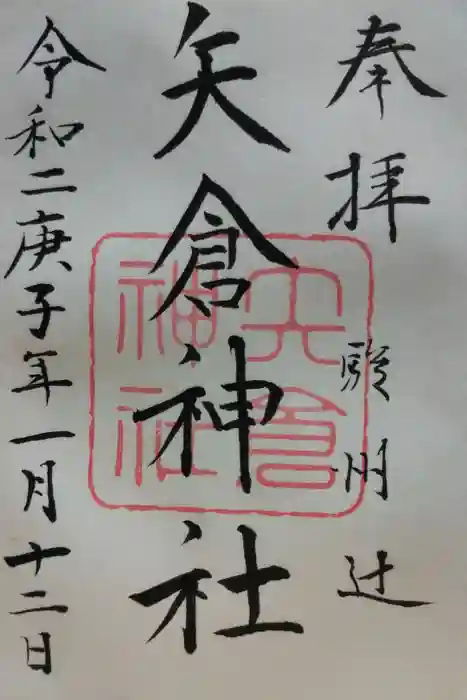 奉拝 駿州辻
矢倉神社
矢倉神社
令和二庚子年一月十二日